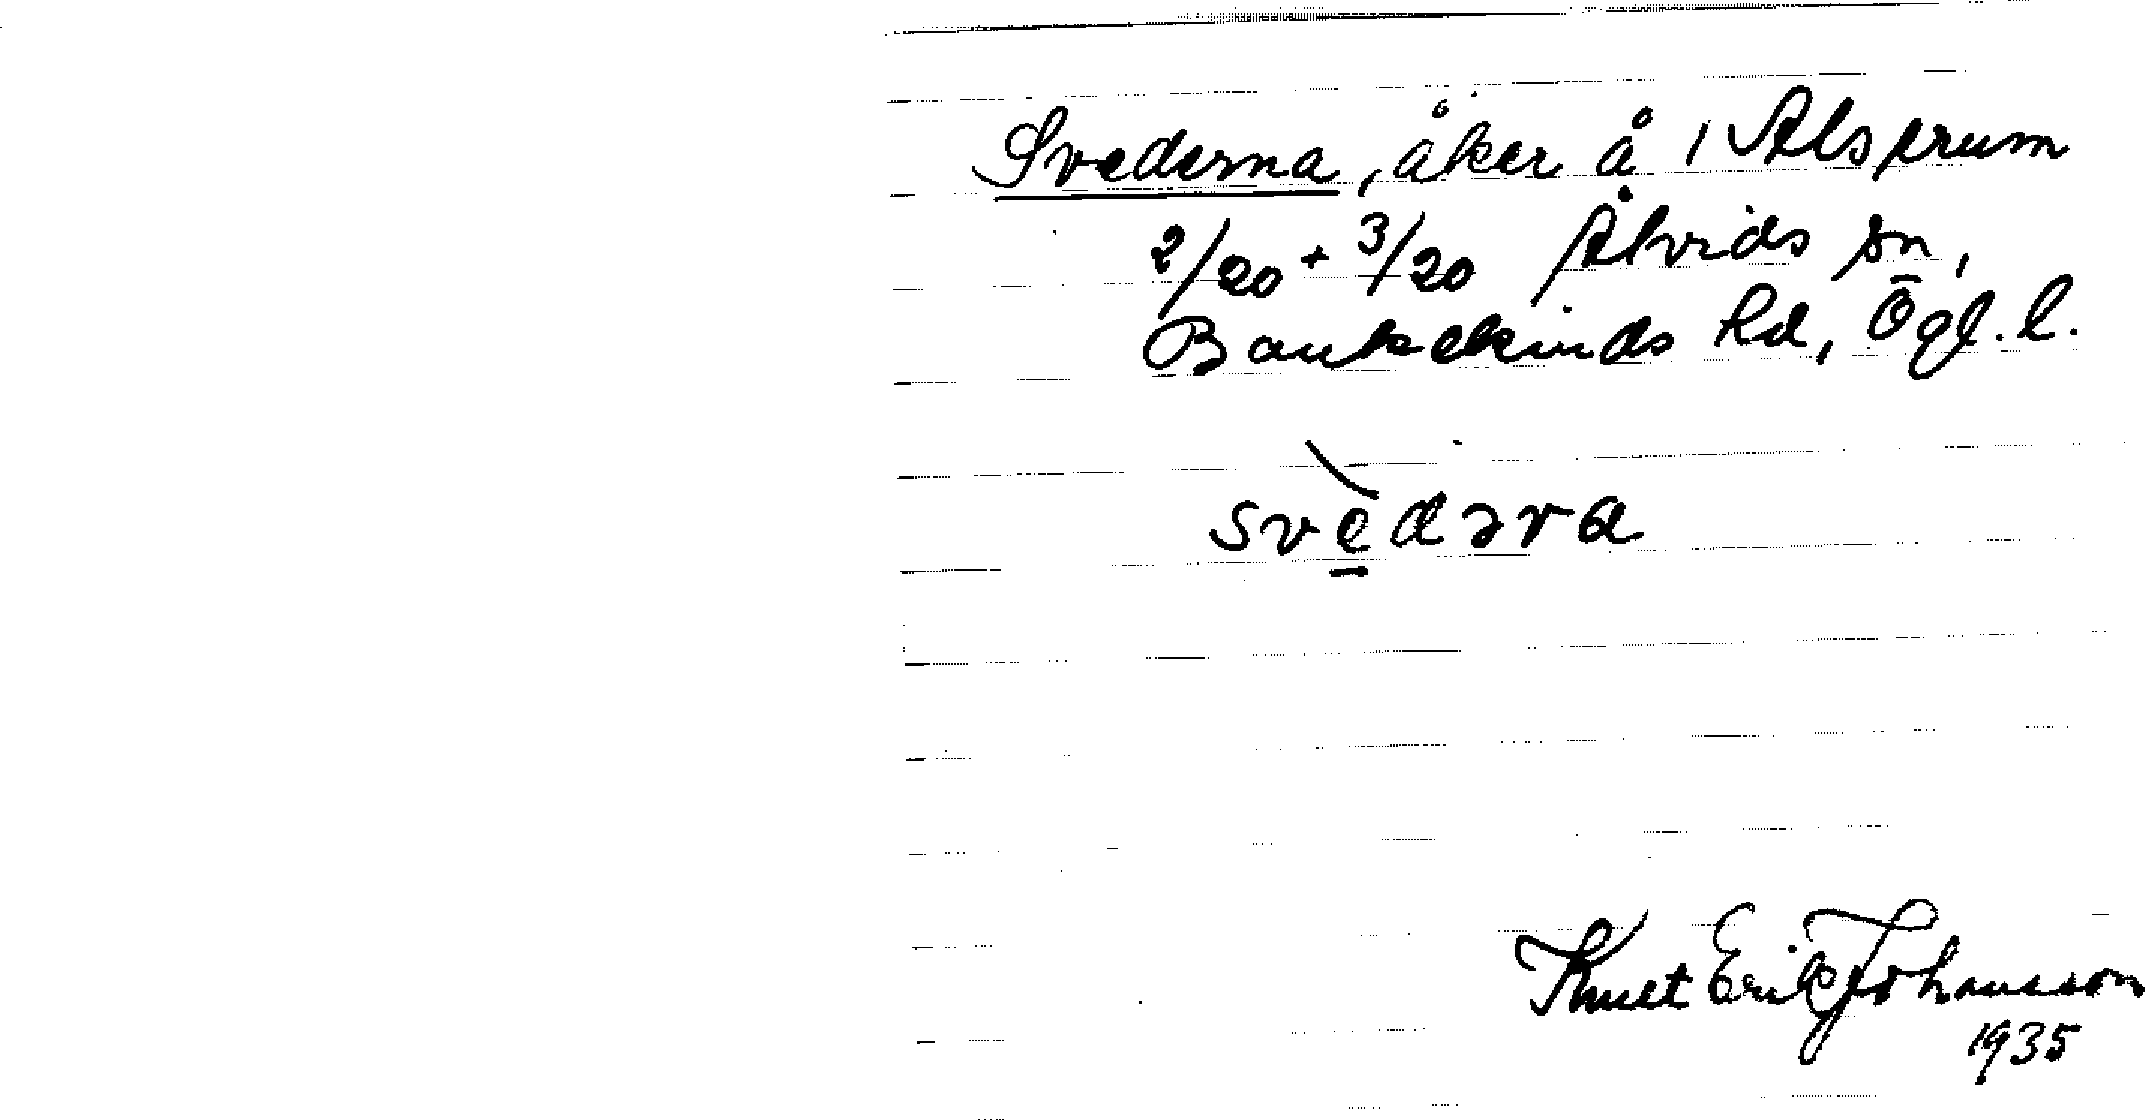 Svederna, åker å / Alsperum
2/20 + 3/20 Åtvids sn,
Bankekinds hd, Ögl. l.
svèdəra
Knut Erik Johansson
1935